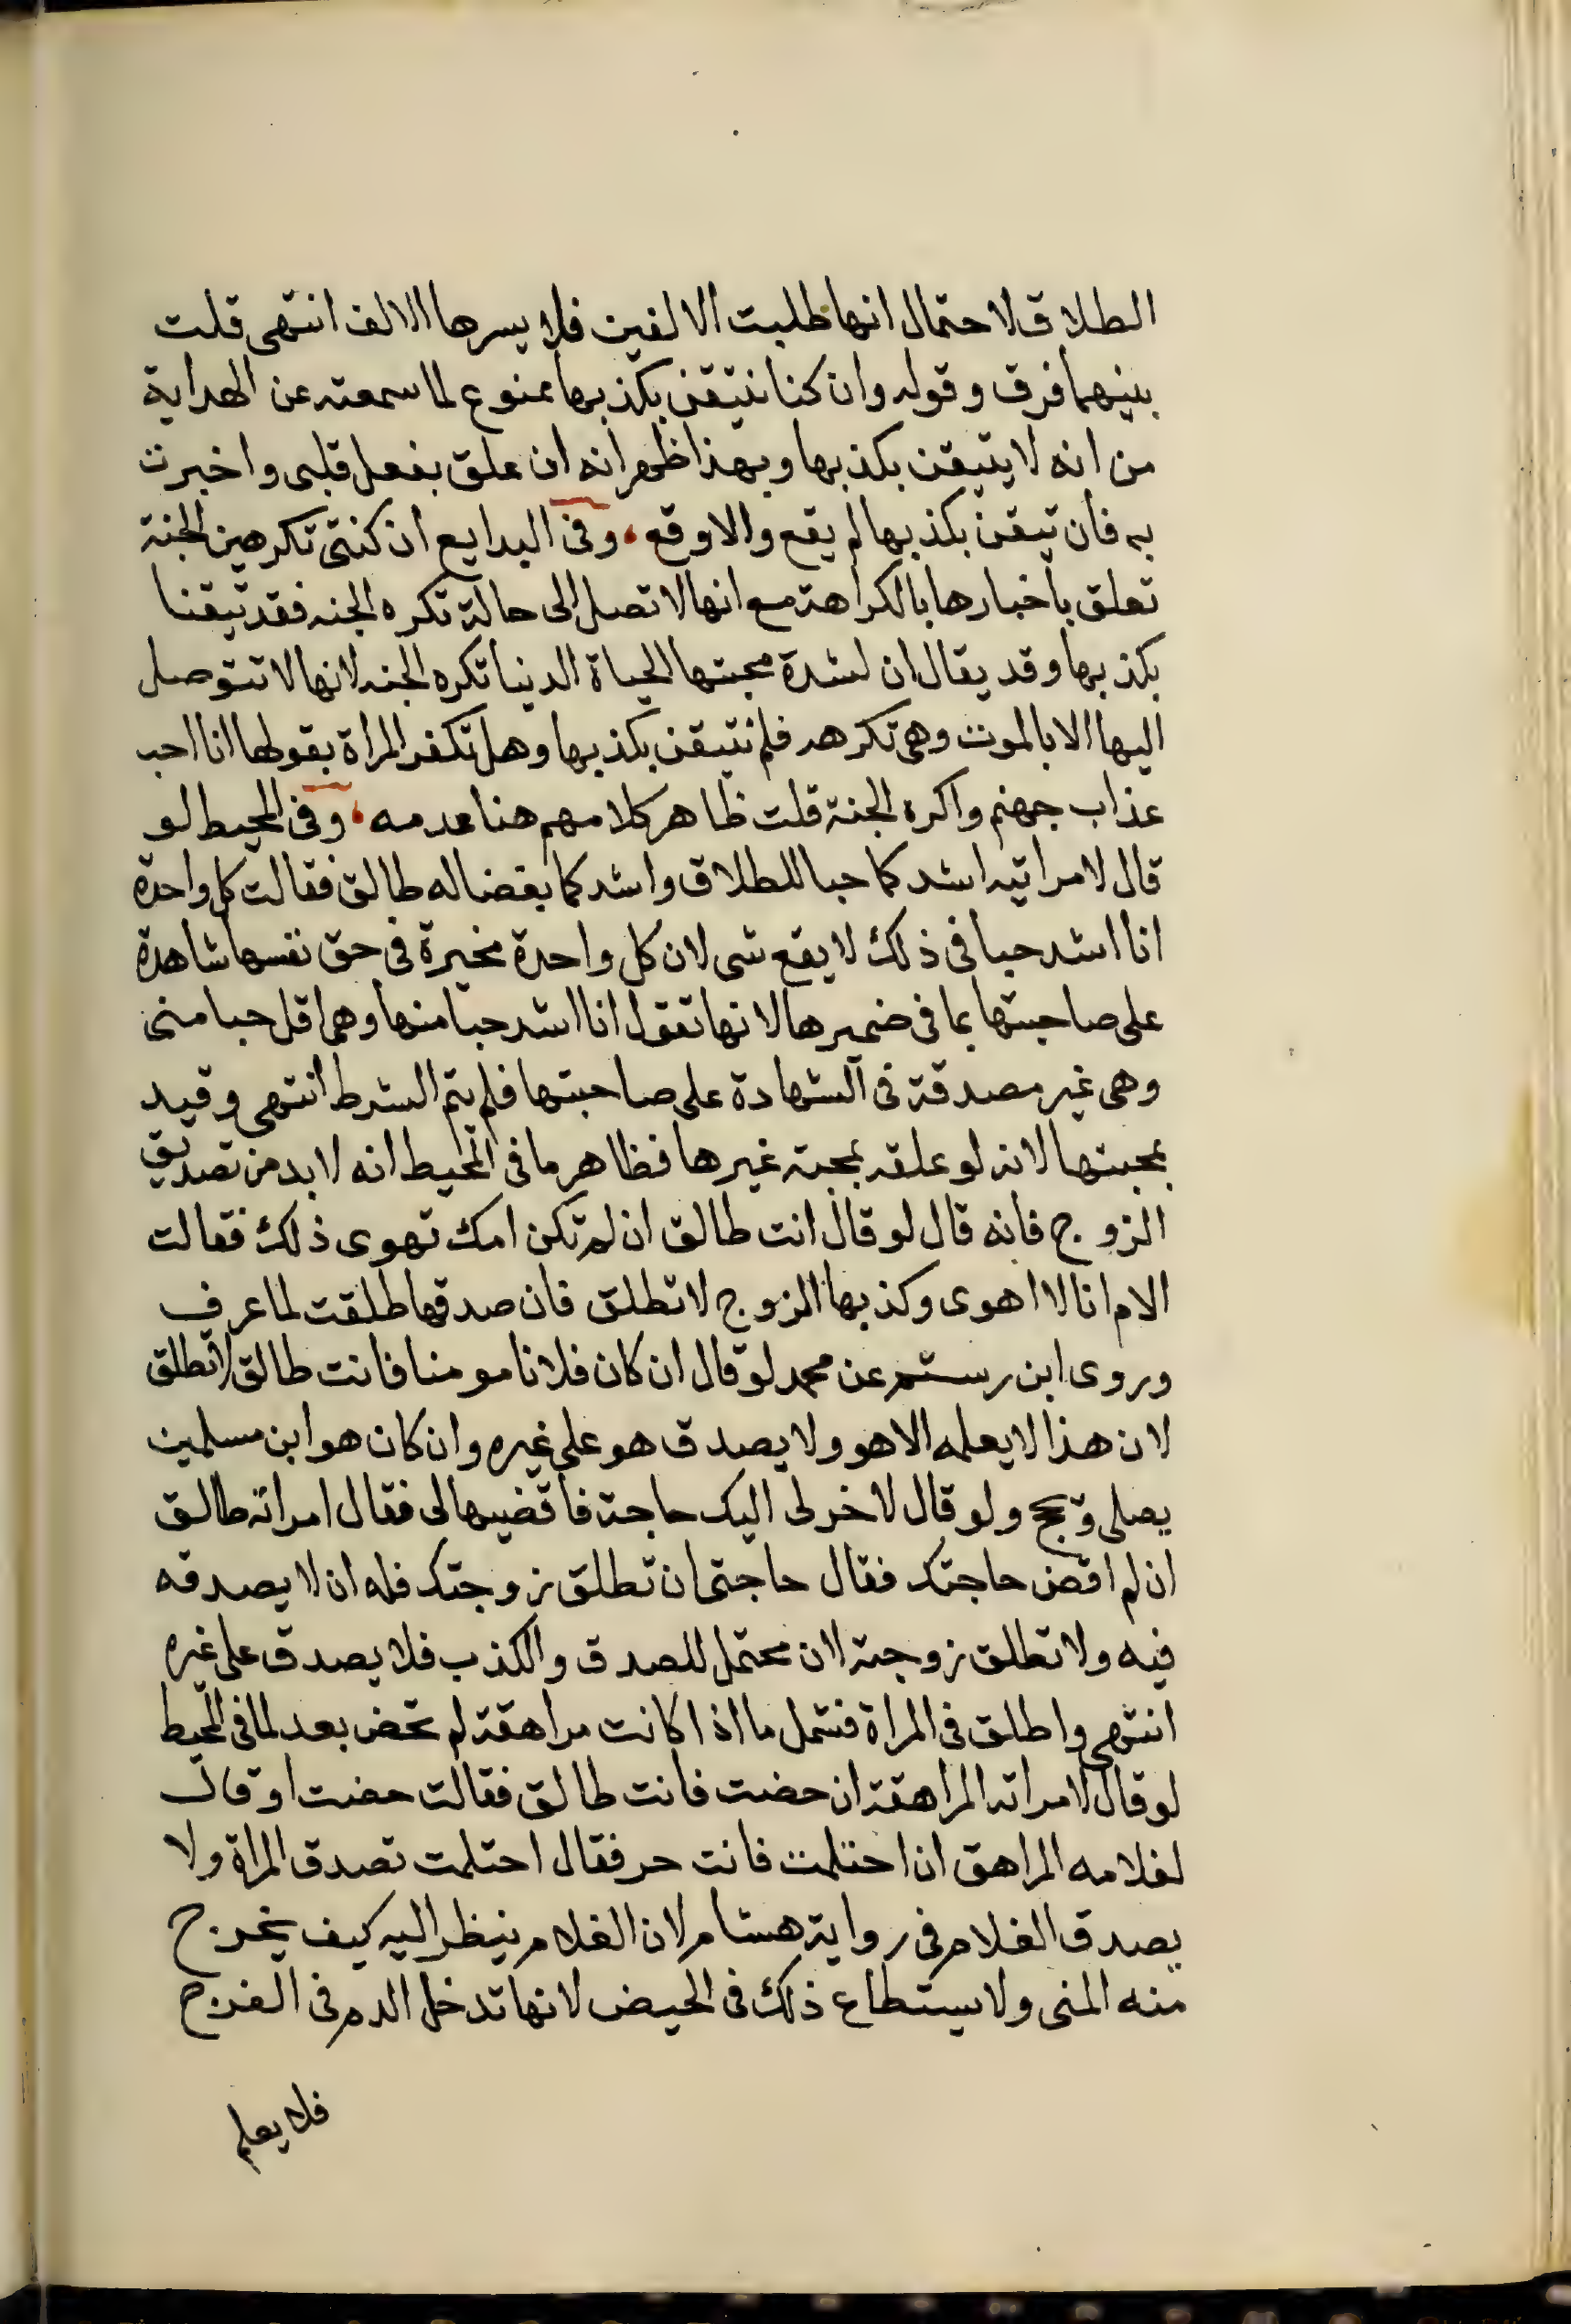 الطلاق لاحتمال انها طلبت الالفين فلا يسرها الالف انتهى قلت
بينهما فرق وقوله وان كنا نتيقن بكذبها ممنوع لما سمعته عن الهداية
من انه لا يتيقن بكذبها وبهذا ظهر انه ان علق بفعل قلبى واخبرت
به فان تيقن بكذبها لم يقع والا وقع، وفى البدايع ان كنتى تكرهين الجنة
تعلق باخبارها بالكراهة مع انها لا تصل الى حالة تكره الجنه فقد تيقنا
بكذبها وقد يقال ان لشدة محبتها الحياة الدنيا تكره الجنه لانها لا تتوصل
اليها الا بالموت وهى تكرهه فلم نتيقن بكذبها وهل تكفر المراة بقولها انا احب
عذاب جهنم واكره الجنة قلت ظاهر كلامهم هنا عدمه، وفى المحيط لو
قال لامراتيه اشد كما حبا للطلاق واشد كما بغضا له طالق فقالت كل واحدة
انا اشد حبا فى ذلك لا يقع شى لان كل واحدة مخبرة فى حق نفسها شاهدة
على صاحبتها بما فى ضميرها لانها تقول انا اشد حبا منها وهى اقل حبا منى
وهى غير مصدقة فى الشهادة على صاحبتها فلم يتم الشرط انتهى وقيد
بمحبتها لانه لو علقه بمحبة غيرها فظاهر ما فى المحيط انه لا بد من تصديق
الزوج فانه قال لو قال انت طالق ان لم تكن امك تهوى ذلك فقالت
الام انا لا اهوى وكذبها الزوج لا تطلق فان صدقها طلقت لما عرف
وروى ابن رستم عن محمد لو قال ان كان فلانا مومنا فانت طالق لا تطلق
لان هذا لا يعلمه الا هو ولا يصدق هو على غيره وان كان هو ابن مسلمين
يصلى ويحج ولو قال لاخر لى اليك حاجة فاقضيها لى فقال امراته طالق
ان لم اقض حاجتك فقال حاجتى ان تطلق زوجتك فله ان لا يصدقه
فيه ولا تطلق زوجته لان محتمل للصدق والكذب فلا يصدق على غيره
انتهى واطلق فى المراة فشمل ما اذا كانت مراهقة لم تحض بعد لما فى المحيط
لو قال لامراته المراهقة ان حضت فانت طالق فقالت حضت او قال
لغلامه المراهق ان احتلمت فانت حر فقال احتلمت تصدق المراة ولا
يصدق الغلام فى رواية هشام لان الغلام ينظر اليه كيف يخرج
منه المنى ولا يستطاع ذلك فى الحيض لانها تدخل الدم فى الفرج
فلا يعلم